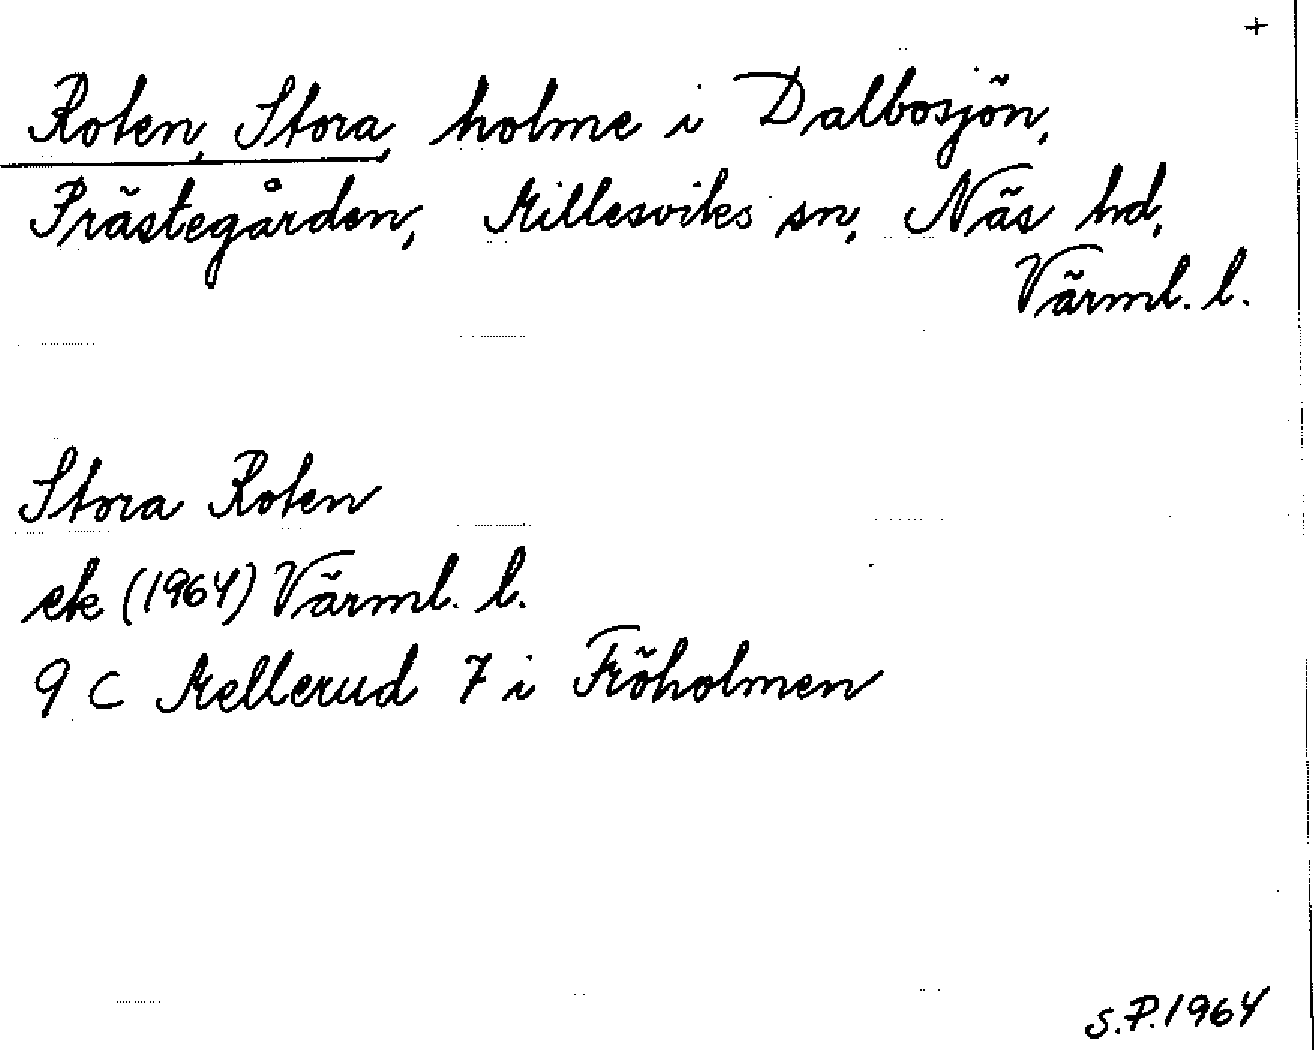 +
Roten, Stora, holme i Dalbosjön,
Prästegården, Millesviks sn, Näs hd,
Värml. l.
Stora Roten
ek (1964) Värml. l.
9 C Mellerud 7 i Fröholmen
S.P. 1964